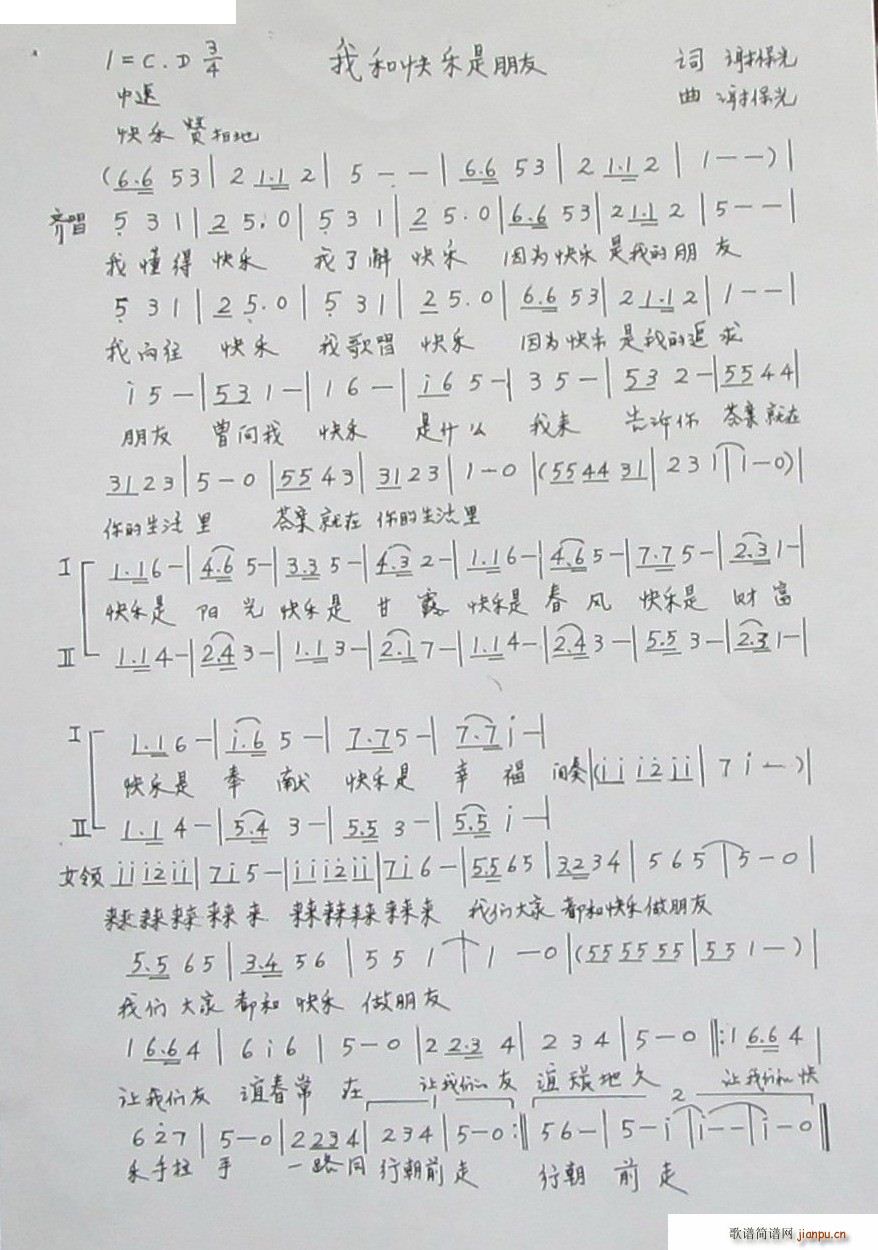 1=C.D 3/4 我和快乐是朋友 词 谢保光
中速 曲 谢保光
快乐 赞相地
(6.6 5 3 | 2 1.1 2 | 5 - - | 6.6 5 3 | 2 1.1 2 | 1 - - ) |
齐唱 5 3 1 | 2 5. 0 | 5 3 1 | 2 5. 0 | 6.6 5 3 | 2 1.1 2 | 5 - - |
我懂得 快乐 我了解 快乐 因为快乐是我的朋友
5 3 1 | 2 5. 0 | 5 3 1 | 2 5. 0 | 6.6 5 3 | 2 1.1 2 | 1 - - |
我向往 快乐 我歌唱 快乐 因为快乐是我的追求
i 5 - | 5 3 1 - | 1 6 - | i 6 5 - | 3 5 - | 5 3 2 - | 5 5 4 4 |
朋友 曾问我 快乐 是什么 我来 告诉你 答案就在
3 1 2 3 | 5 - 0 | 5 5 4 3 | 3 1 2 3 | 1 - 0 | (5 5 4 4 3 1 | 2 3 1 | 1 - 0) |
你的生活里 答案就在你的生活里
I 1.1 6 - | 4.6 5 - | 3.3 5 - | 4.3 2 - | 1.1 6 - | 4.6 5 - | 7.7 5 - | 2.3 1 - |
快乐是 阳光 快乐是 甘露 快乐是 春风 快乐是 财富
II 1.1 4 - | 2.4 3 - | 1.1 3 - | 2.1 7 - | 1.1 4 - | 2.4 3 - | 5.5 3 - | 2.3 1 - |
I 1.1 6 - | i.6 5 - | 7.7 5 - | 7.7 i - |
快乐是 奉献 快乐是 幸福 间奏 | (i i i 2 i i | 7 i - ) |
II 1.1 4 - | 5.4 3 - | 5.5 3 - | 5.5 i - |
女领 i i i 2 i i | 7 i 5 - | i i i 2 i i | 7 i 6 - | 5.5 6 5 | 3.2 3 4 | 5 6 5 | 5 - 0 |
来来来来来来来来来 来来来来来来来来来 我们大家 都和快乐做朋友
5.5 6 5 | 3.4 5 6 | 5 5 1 | 1 - 0 | (5 5 5 5 5 5 | 5 5 1 - ) |
我们大家都和快乐 做朋友
1 6.6 4 | 6 i 6 | 5 - 0 | 2 2.3 4 | 2 3 4 | 5 - 0 ‖: 1 6.6 4 |
让我们友 谊春常 在 让我们友 谊暖地久 2 让我们和快
6 2 7 | 5 - 0 | 2 2 3 4 | 2 3 4 | 5 - 0 :‖ 5 6 - | 5 - i | i - - | i - 0 ‖
乐手拉手 一路同行朝前走 行朝 前 走
歌谱简谱网 jianpu.cn